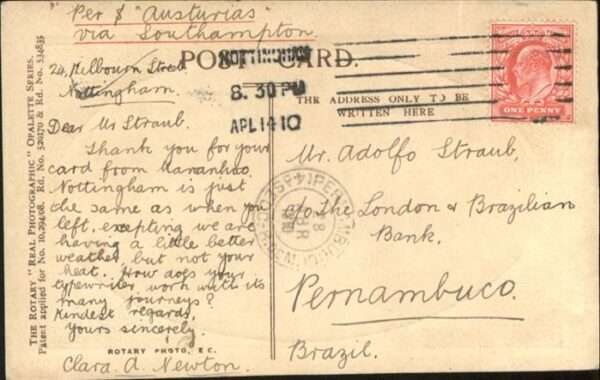 Per $ "Austurias"
via Southampton
POST CARD.
24, Melbourn Street
Nottingham.
NOTTINGHAM
8.30 PM
APL 14 10
THE ADDRESS ONLY TO BE
WRITTEN HERE
ONE PENNY
Dear Mr Straub.
Thank you for your
card from Maranhao.
Nottingham is just
the same as when you
left, exepting we are
having a little better
weather, but not your
heat. How does your
typewriter work with its
many journeys?
Kindest regards,
Yours sincerely
Clara A. Newton.
Mr. Adolfo Straub,
c/o The London & Brazilian
Bank.
Pernambuco.
Brazil.
ROTARY PHOTO, E.C.
THE ROTARY "REAL PHOTOGRAPHIC" OPALETTE SERIES.
Patent applied for No.
& Rd. No.